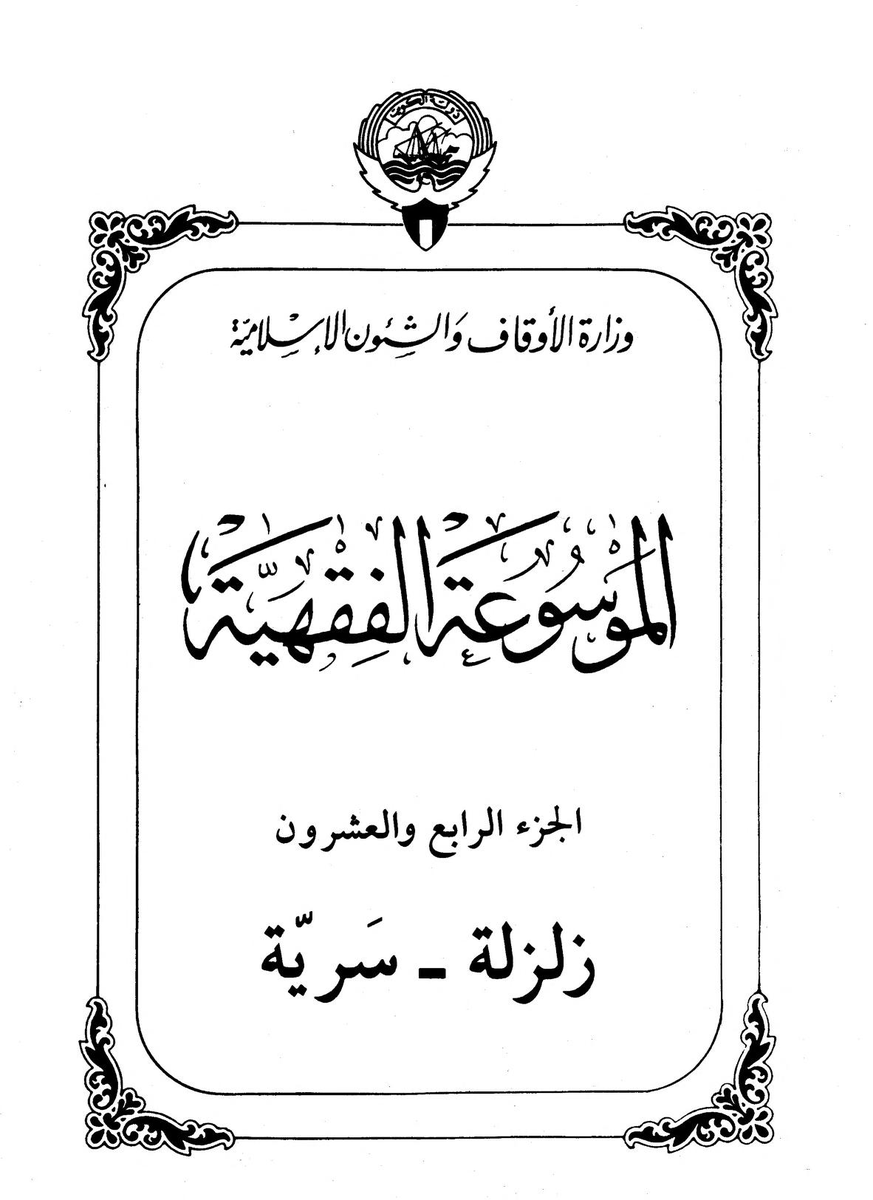 دولة الكويت
وزارة الأوقاف والشئون الإسلامية
الموسوعة الفقهية
الجزء الرابع والعشرون
زلزلة - سَريّة